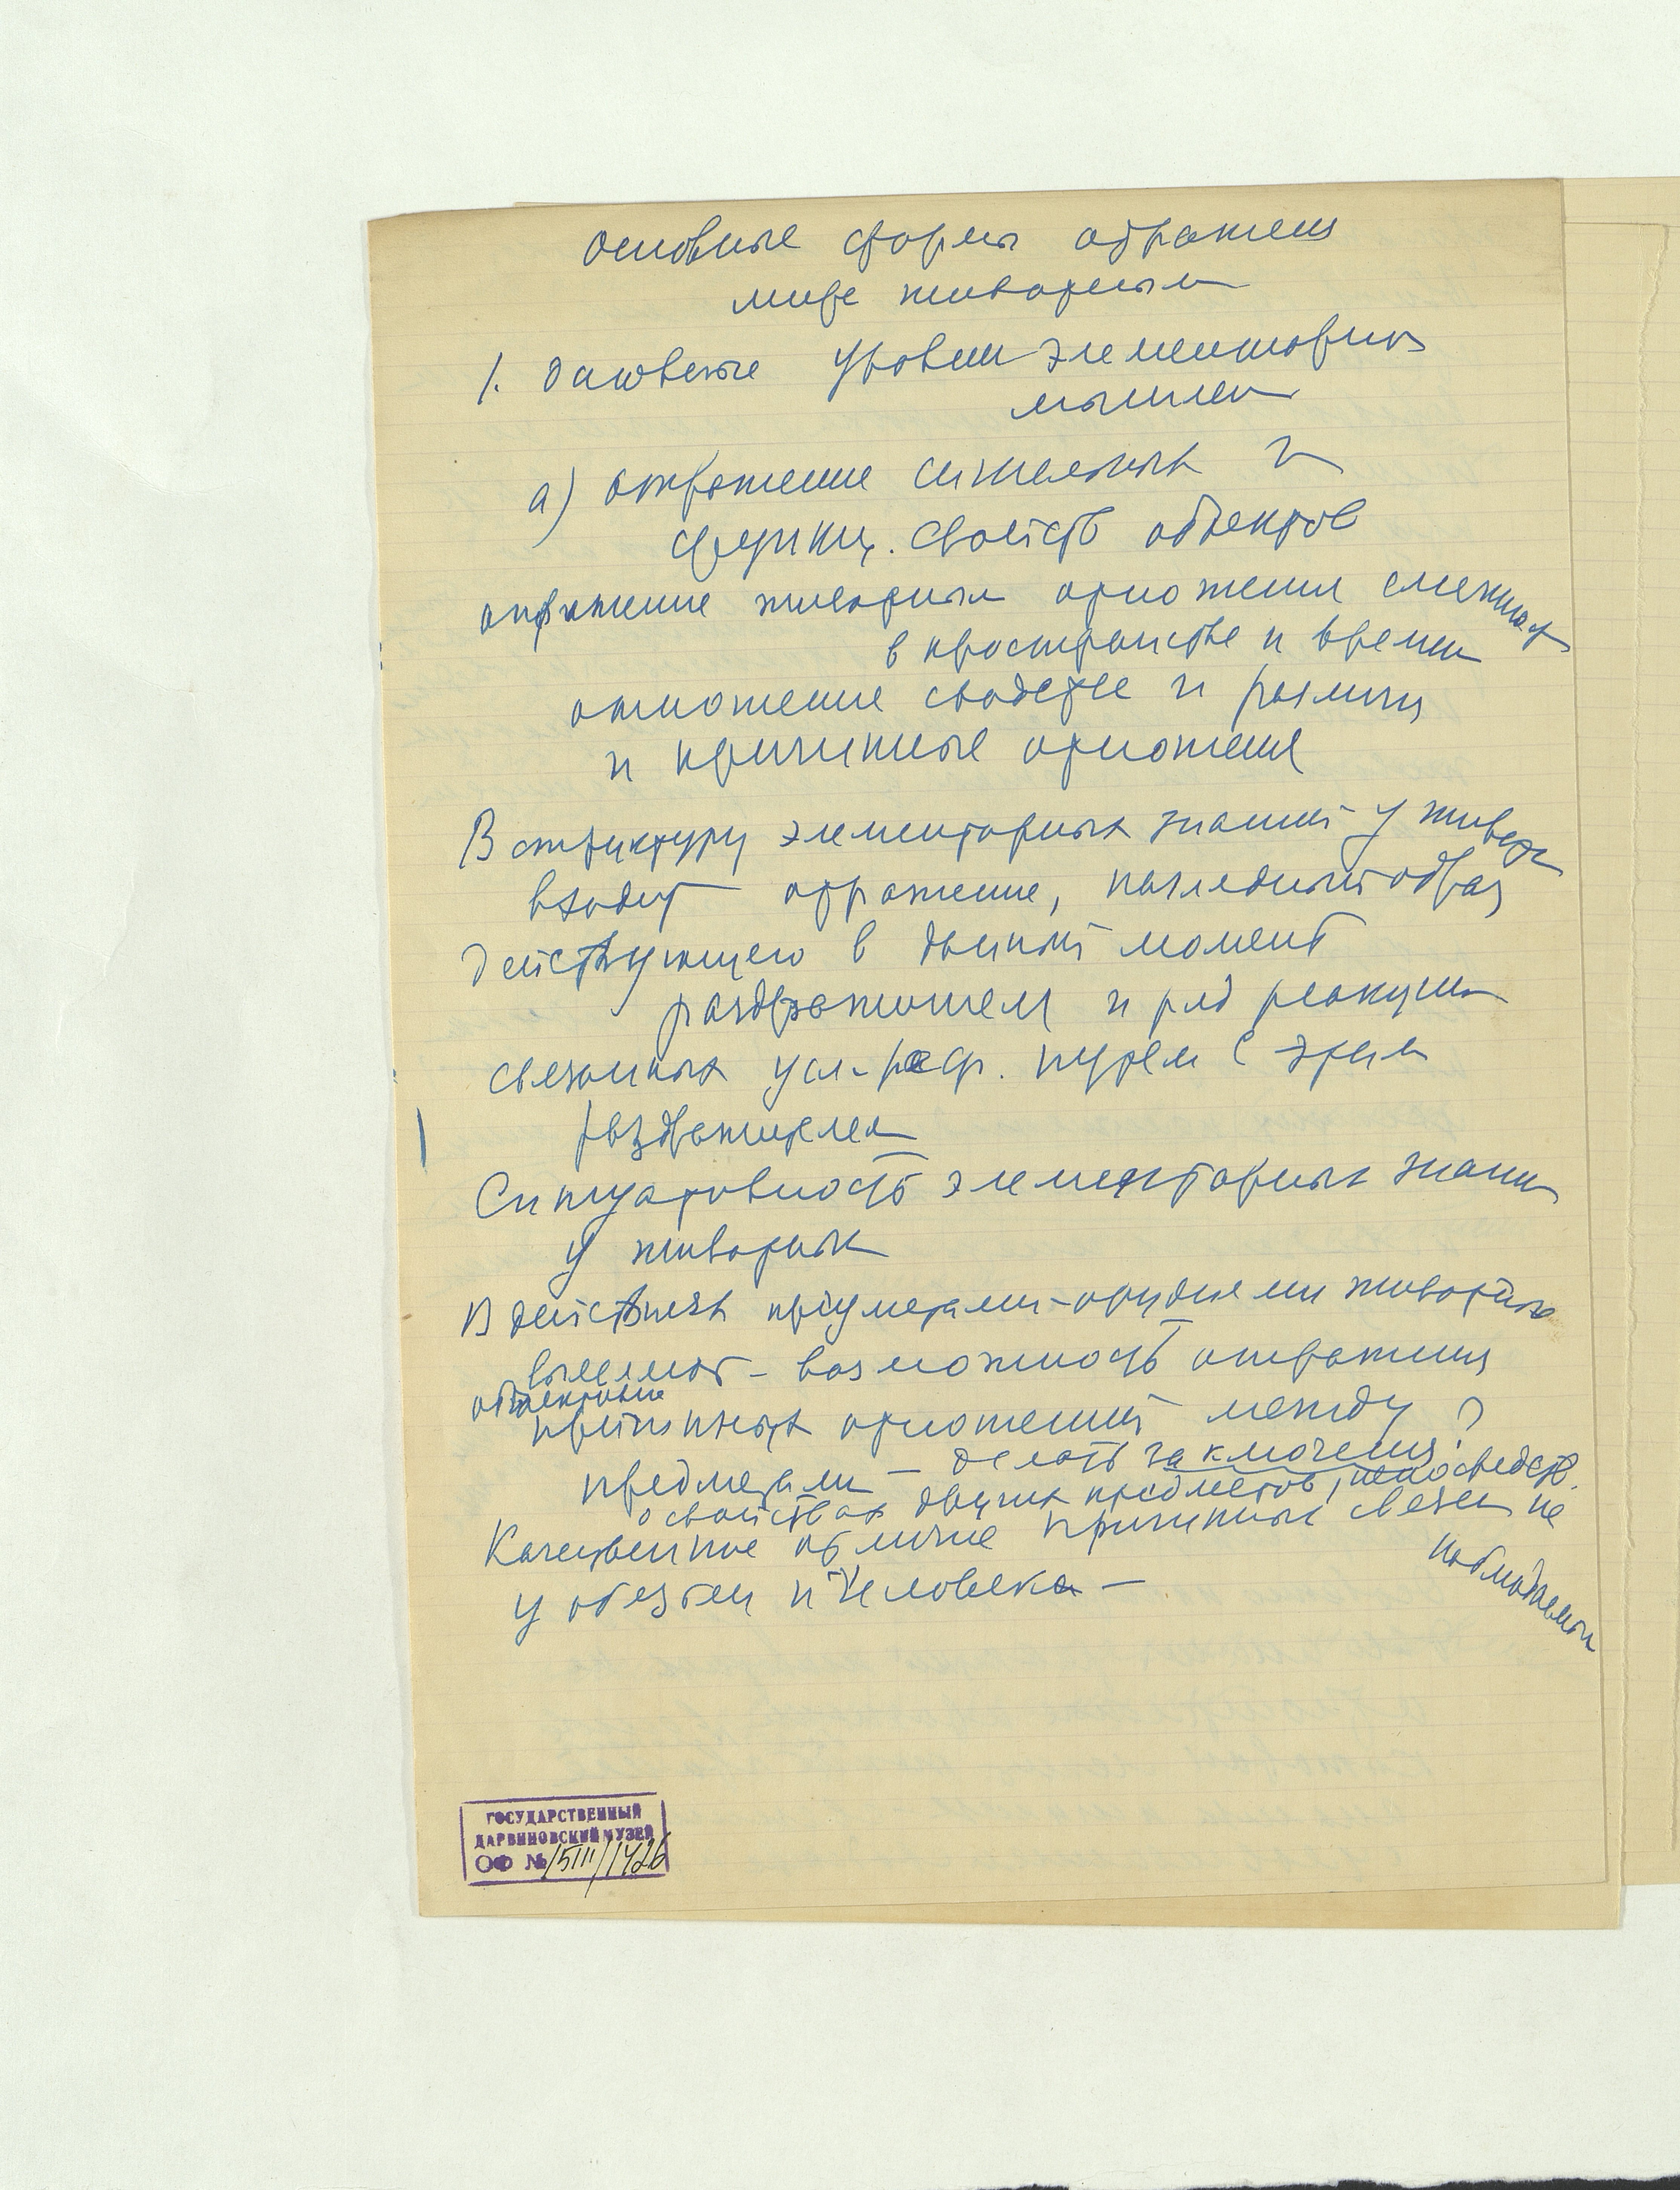 Основные формы отражения
мира животными
1. Основные уровни элементарных
мышлен
а) отражение сигнальных и
функц. свойств объектов
отражение животными отношения смежност
в пространстве и времени
отношение сходства и различия
и причинные отношения
В структуру элементарных знаний у животн
входит отражение, наглядный образ
действующего в данный момент
раздражителя и ряд реакций
связанных усл-рефл. путем с этим
раздражителем
Ситуативность элементарных знаний
у животных
В действиях предметами-орудиями животных
возможность отражения
объективных
причинных отношений между ?
предметами – делать заключения
о свойствах других предметов, непосредств.
Качественное отличие причинных связей не
наблюдаемых
у обезьян и человека –
ГОСУДАРСТВЕННЫЙ
ДАРВИНОВСКИЙ МУЗЕЙ
ОФ № 15111/1426